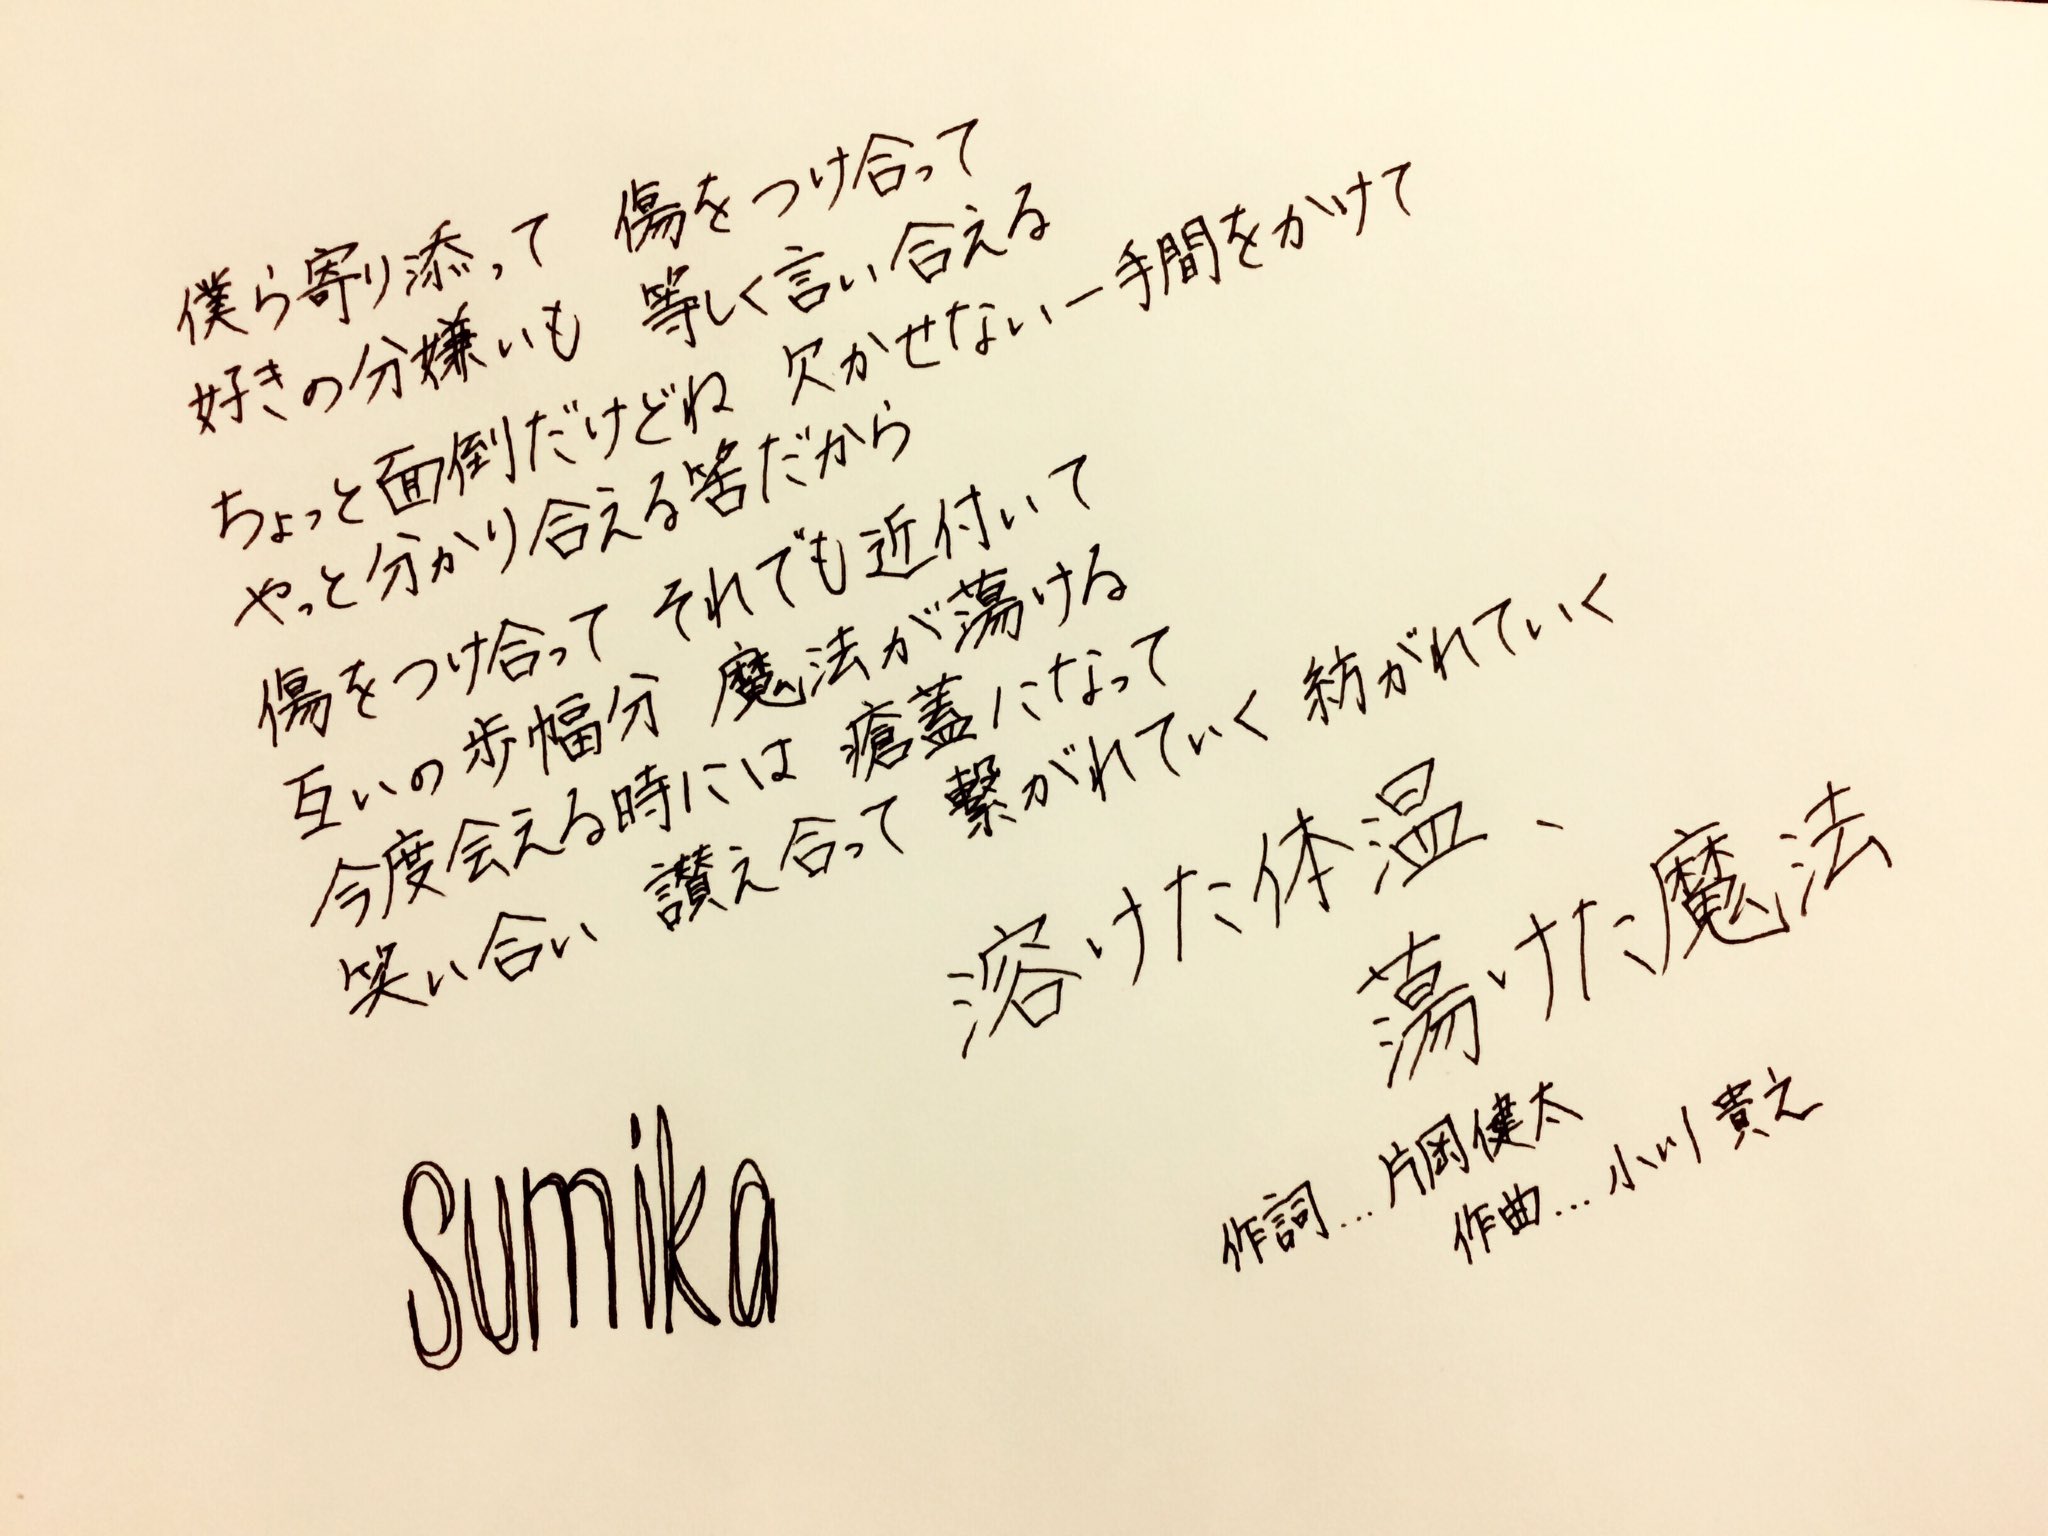 僕ら寄り添って 傷をつけ合って
好きの分嫌いも 等しく言い合える
ちょっと面倒だけどね 欠かせない一手間をかけて
やっと分かり合える筈だから
傷をつけ合って それでも近付いて
互いの歩幅分 魔法が蕩ける
今度会える時には 瘡蓋になって
笑い合い 讃え合って 繋がれていく 紡がれていく
溶けた体温、
蕩けた魔法
作詞…片岡健太
作曲…小川貴之
sumika